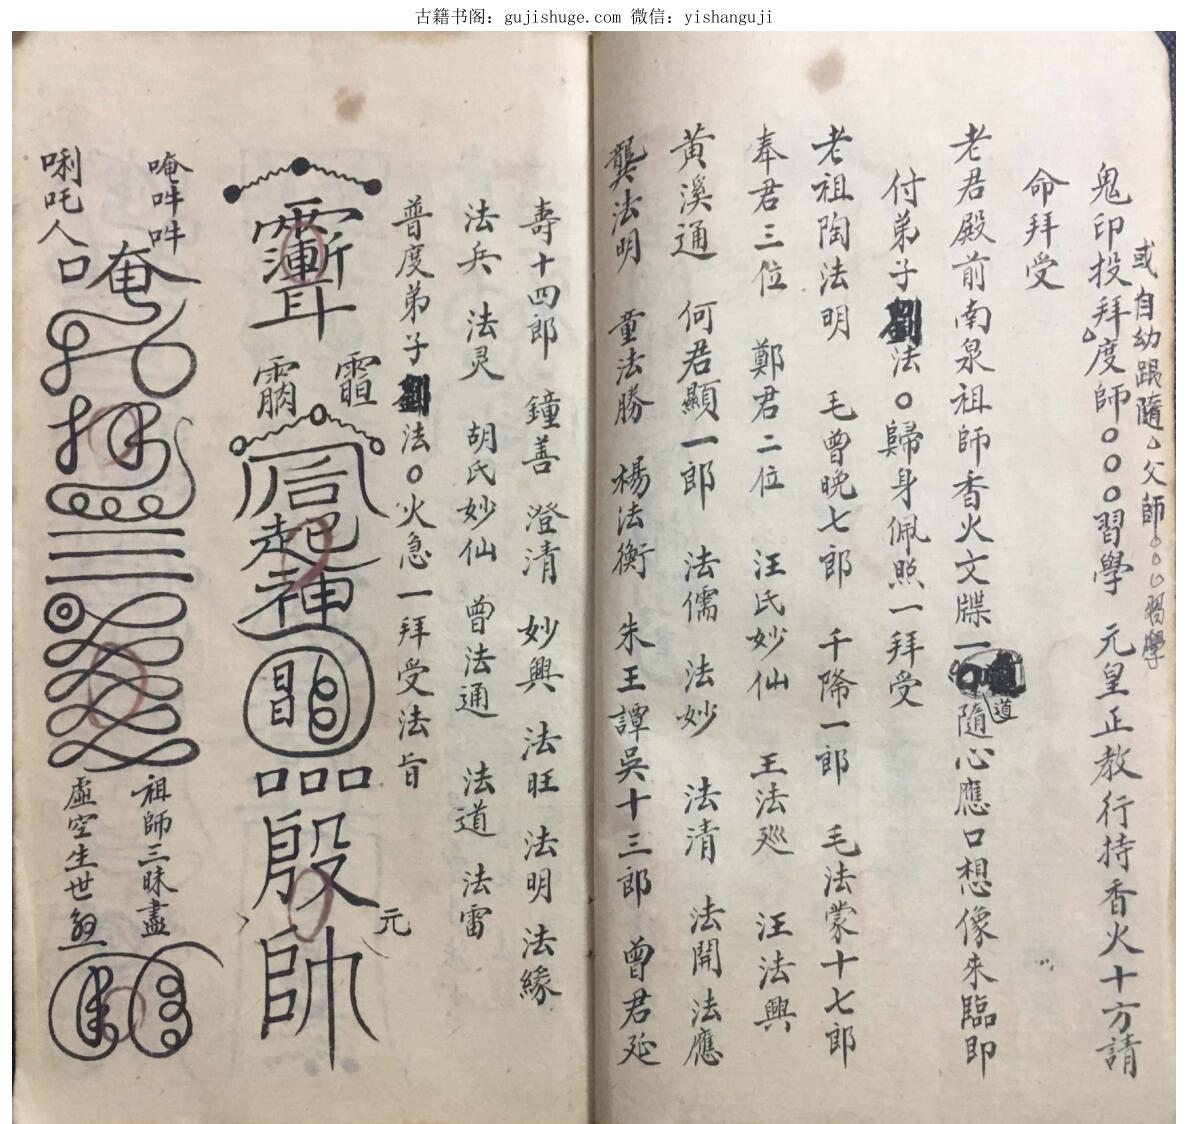 古籍书阁：gujishuge.com 微信：yishanguji
或自幼跟隨父師○○○習學
鬼印投拜度師○○○習學 元皇正教行持香火十方請
命拜受
老君殿前南泉祖師香火文牒一道隨心應口想像來臨即
付弟子劉法○歸身佩照一拜受
老祖陶法明 毛曾晚七郎 千降一郎 毛法蒙十七郎
奉君三位 鄭君二位 汪氏妙仙 王法 汪法興
黃溪通 何君顯一郎 法儒 法妙 法清 法開 法應
龔法明 童法勝 楊法衡 朱王譚吳十三郎 曾君
壽十四郎 鐘善 澄清 妙興 法旺 法明 法緣
法兵 法灵 胡氏妙仙 曾法通 法道 法雷
普度弟子劉法○火急一拜受法旨
神
口口口
殷
元
帥
唵吽吽
唎吒人
口奄
祖師三昧盡
虛空生世